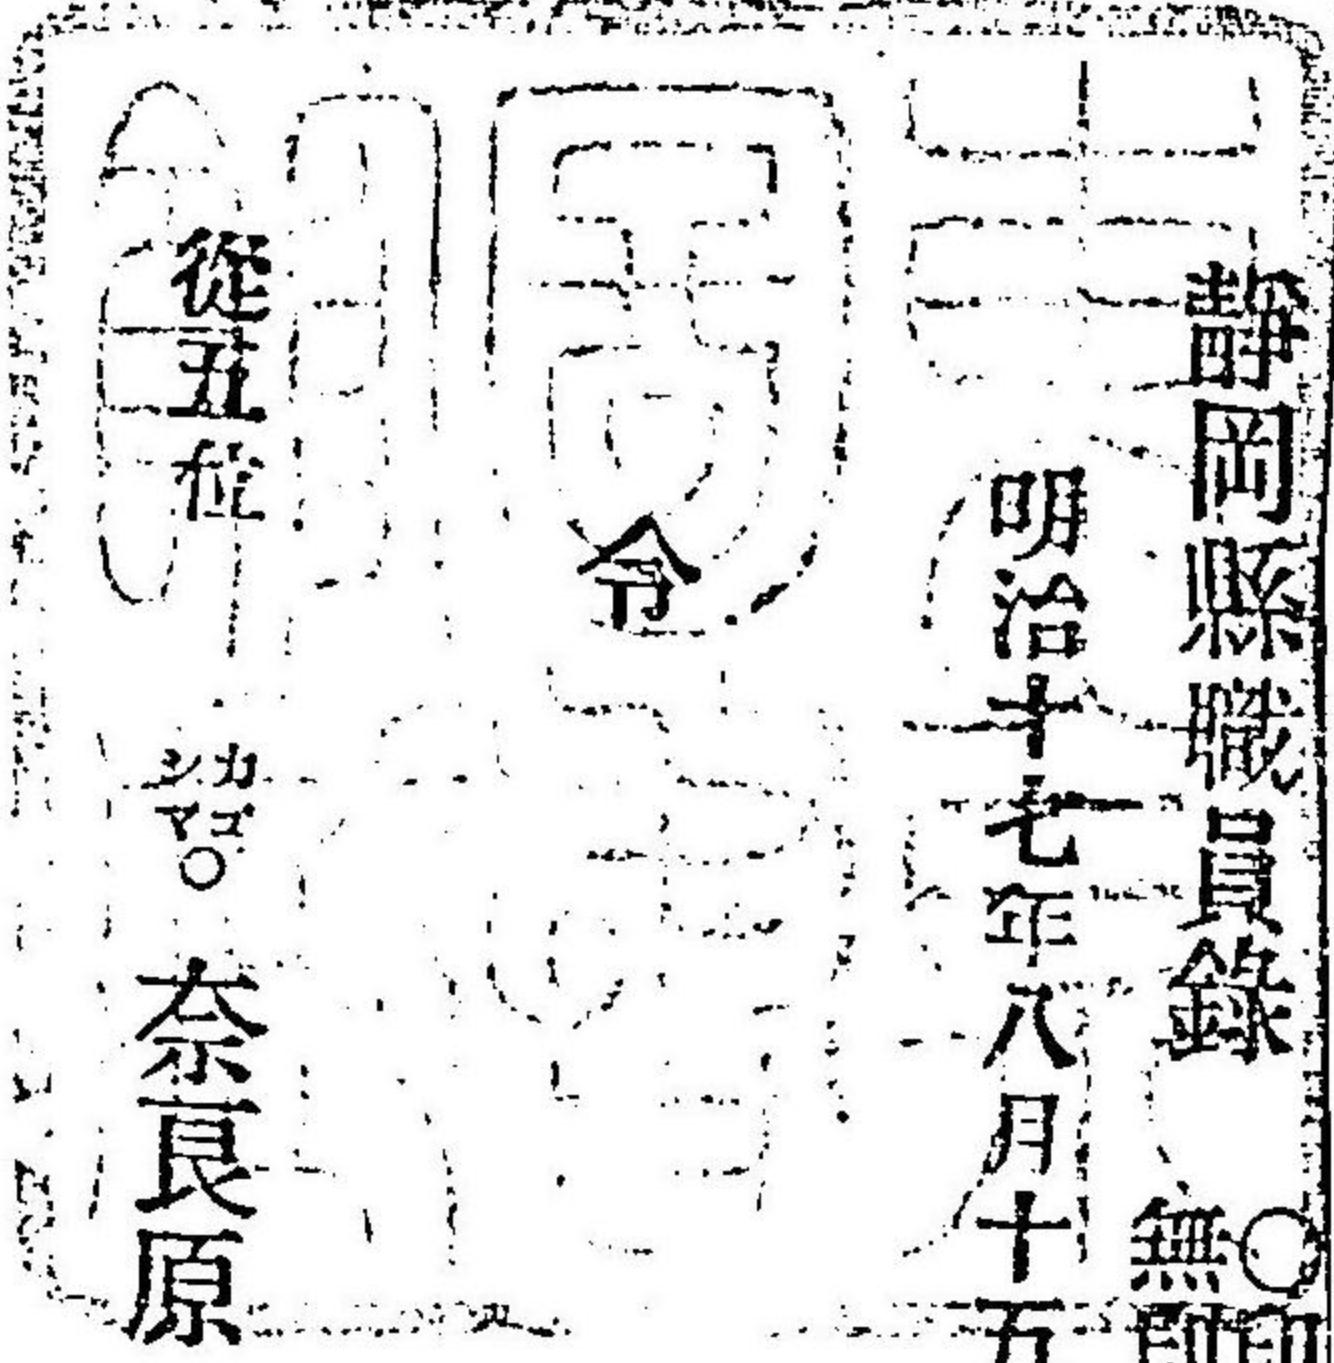 靜岡縣職員錄
○印
無印
明治十七年八月十五
令
從五位
カゴシマ○
奈良原